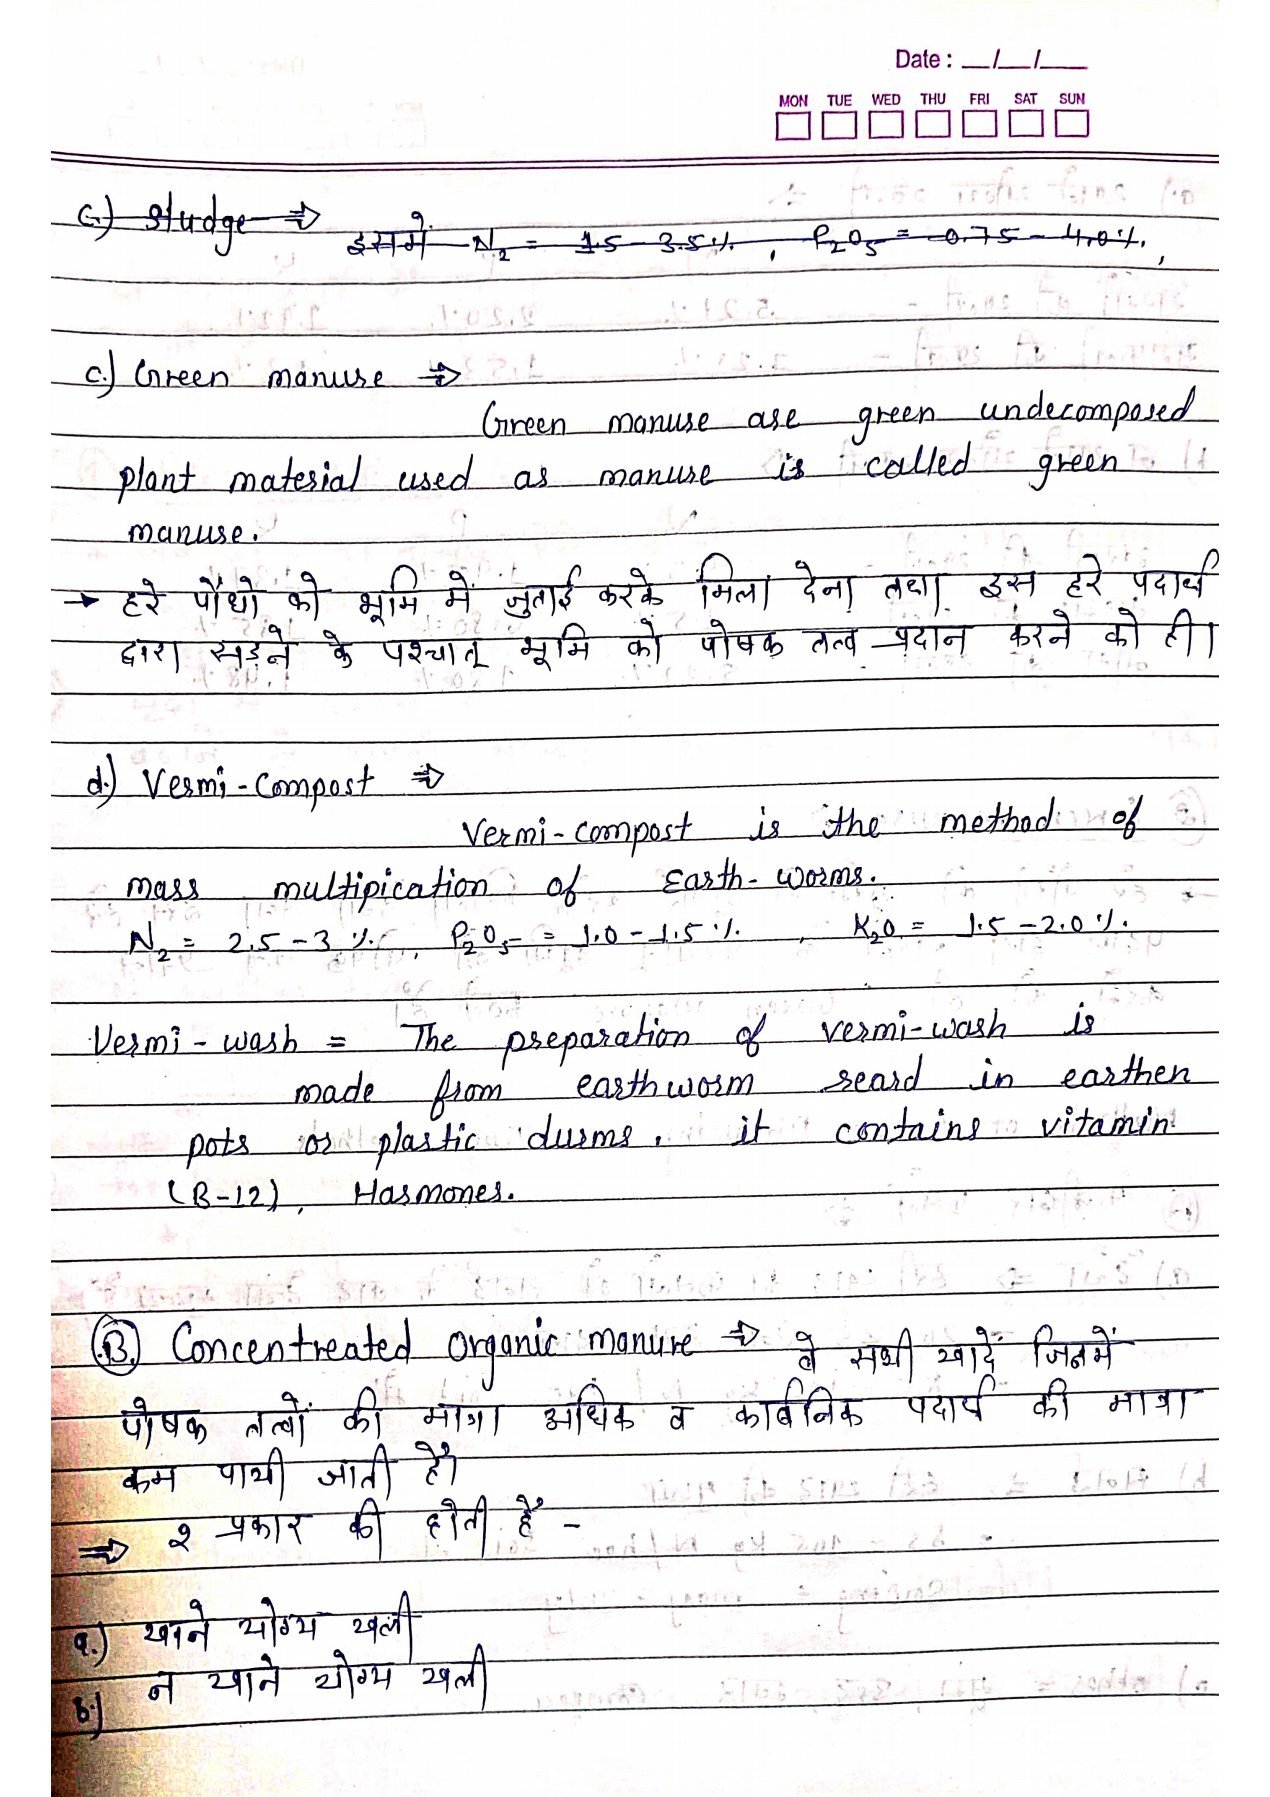 Date : __/__/__
MON TUE WED THU FRI SAT SUN
c.) Sludge ⇒ इसमें N₂ = 1.5 - 3.5%, P₂O₅ = 0.75 - 4.0%,
c.) Green manuse ⇒
Green manuse ase green undecomposed
plant matesial used as manuse is called green
manuse.
→ हरे पौधो को भूमि में जुताई करके मिला देना तथा इस हरे पदार्थ
द्वारा सड़ने के पश्चात् भूमि को पोषक तत्व प्रदान करने को ही।
d.) Vesmi-Compost ⇒
Vermi-compost is the method of
mass multipication of Easth-worms.
N₂ = 2.5-3%, P₂O₅ = 1.0-1.5%, K₂O = 1.5-2.0%.
Vesmi-wash = The pseparation of vesmi-wash is
made from easthworm seasd in easthen
pots os plastic dusms. it contains vitamin
(B-12), Hasmones.
(B.) Concentreated Organic manure ⇒ वे सभी खादें जिनमें
पोषक तत्वों की मात्रा अधिक व कार्बनिक पदार्थ की मात्रा
कम पायी जाती है।
⇒ 2 प्रकार की होती हैं -
a.) खाने योग्य खली
b.) न खाने योग्य खली